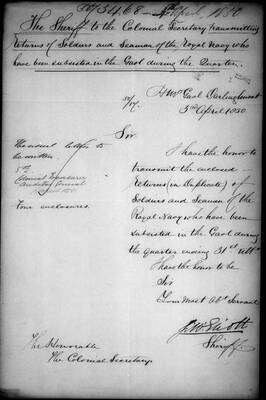 50/3468 - April 1850
The Sheriff to the Colonial Secretary transmitting
Returns of Soldiers and Seamen of the Royal Navy who
have been subsisted in the Gaol during the Quarter.
H M Gaol Darlinghurst
50/17.
3rd April 1850
Sir
I have the honor to
transmit the enclosed
Returns (in Duplicate) of
Soldiers and Seamen of the
Royal Navy who have been
subsisted in the Gaol during
the Quarter ending 31st ulto
I have the honor to be
Sir
Your Most obt Servant
Sheriff.
The usual letters to
be written
Colonial Treasurer
Auditor General
Four enclosures.
The Honorable
The Colonial Secretary